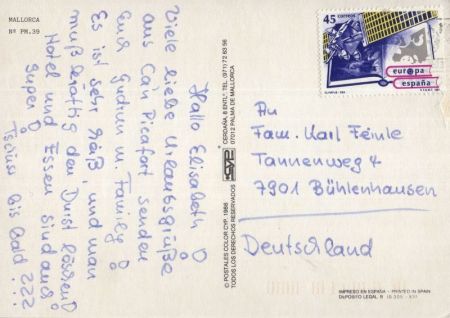 MALLORCA
Nº PM.39
Hallo Elisabeth
Viele liebe Urlaubsgrüße
aus Ca'n Picafort senden
Euch Gudrun u. Family
Es ist sehr heiß, und man
muß kräftig den Durst löschen
Hotel und Essen sind auch
super
Tschüss bis bald ???
© POSTALES COLOR CYP, 1988
TODOS LOS DERECHOS RESERVADOS
CYP
CERDAÑA, 8 ENTLº TEL. (971) 72 63 56
07012 PALMA DE MALLORCA
45 CORREOS
europa
españa
OLYMPUS - ESA
An
Fam. Karl Feinle
Tannenweg 4
7901 Bühlenhausen
Deutschland
IMPRESO EN ESPAÑA - PRINTED IN SPAIN
DEPOSITO LEGAL B